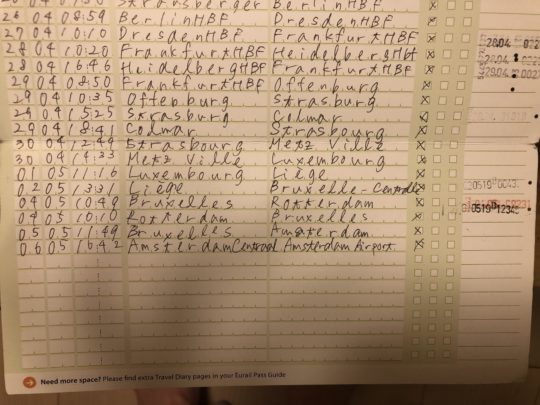 Strausberger BerlinHBF
26 04 08:59 BerlinHBF DresdenHBF
27 04 10:10 DresdenHBF FrankfurtHBF
28 04 10:20 FrankfurtHBF HeidelbergHbf
28 04 16:46 HeidelbergHBF FrankfurtHBF
29 04 08:50 FrankfurtHBF Offenburg
29 04 10:35 Offenburg Strasburg
29 04 15:25 Strasburg Colmar
29 04 18:41 Colmar Strasbourg
30 04 12:49 Strasbourg Metz Ville
30 04 Metz Ville Luxembourg
01 05 11:16 Luxembourg Liège
02 05 13:31 Liège Bruxelle-Centrale
04 05 10:49 Bruxelles Rotterdam
04 05 10:10 Rotterdam Bruxelles
05 05 11:49 Bruxelles Amsterdam
06 05 16:42 AmsterdamCentraal Amsterdam Airport
Need more space? Please find extra Travel Diary pages in your Eurail Pass Guide